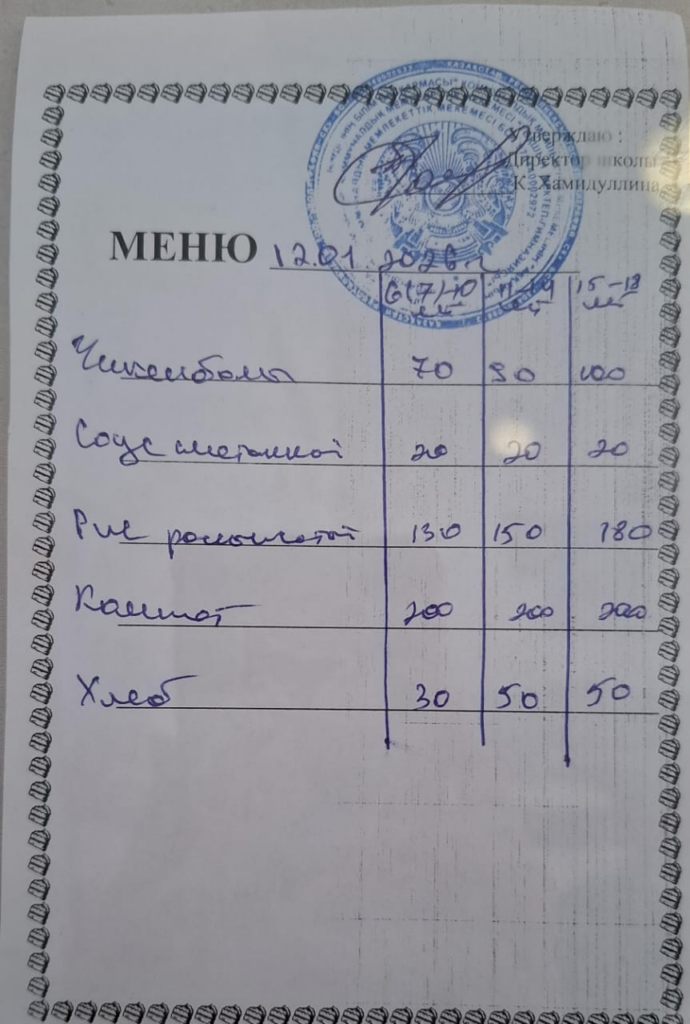 Утверждаю :
Директор школы
К. Хамидуллина
МЕНЮ 12.01.2026 г
6(7)-10 лет 11-14 лет 15-18 лет
Чикенболы 70 90 100
Соус сметанный 20 20 20
Рис рассыпчатый 130 150 180
Компот 200 200 200
Хлеб 30 50 50